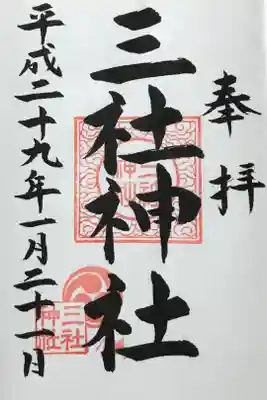 奉拝
三社神社
平成二十九年一月二十一日
三社
神社